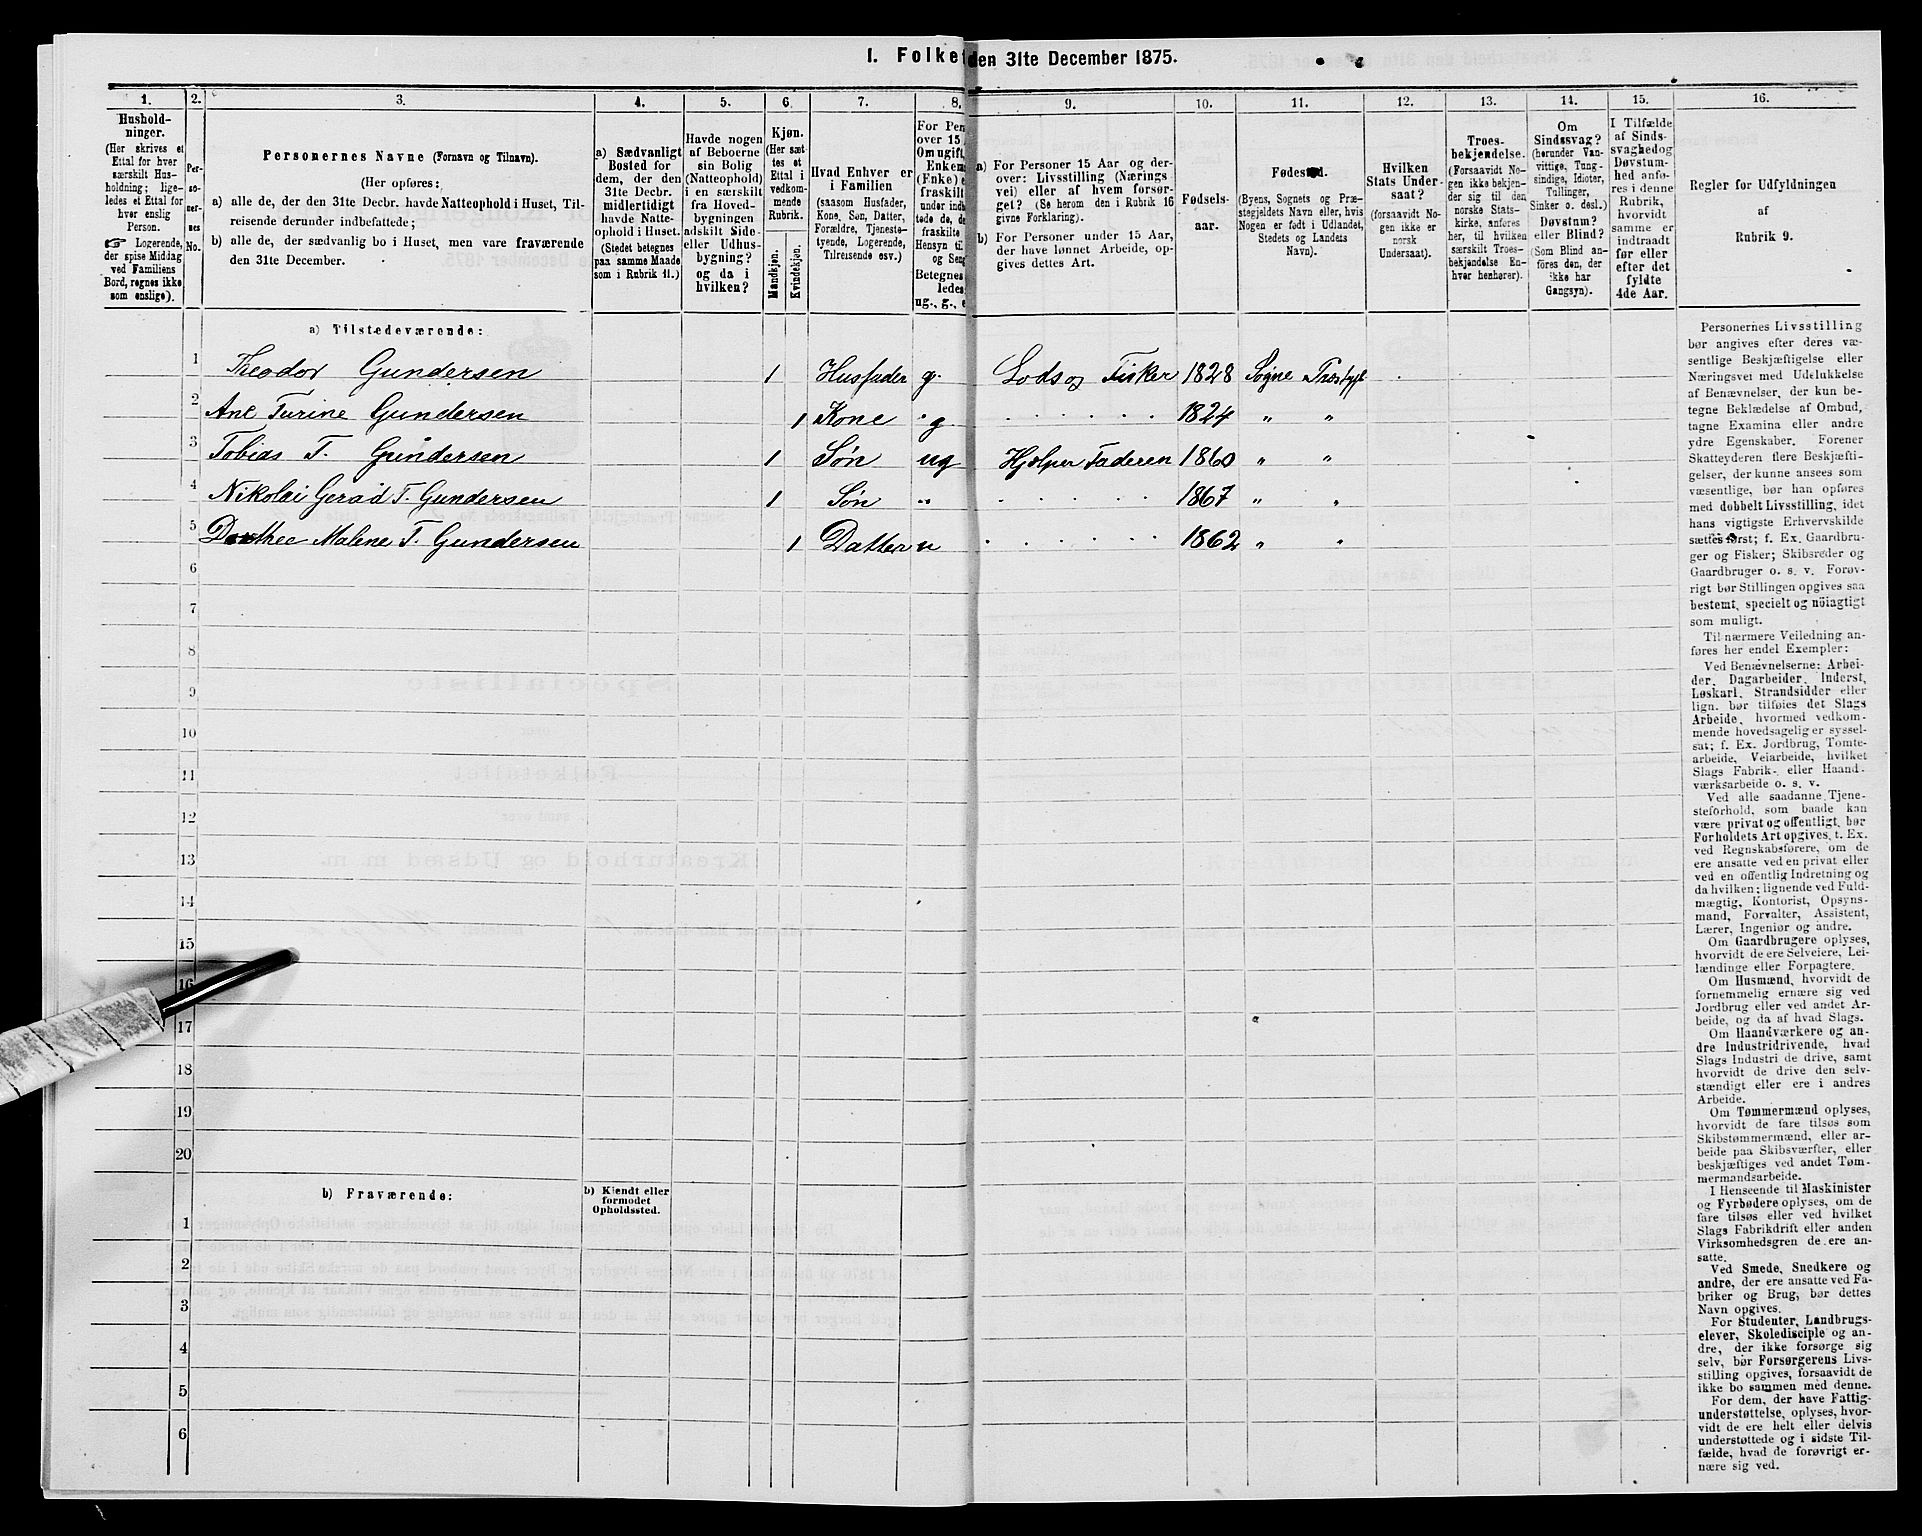 1. Folket den 31te December 1875.
1. 2. 3. 4. 5. 6. 7. 8. 9. 10. 11. 12. 13. 14. 15. 16.
Hushold-
ninger.
(Her skrives et
Ettal for hver
særskilt Hus-
holdning; lige-
ledes et Ettal for
hver enslig
Person.
☞ Logerende,
der spise Middag
ved Familiens
Bord, regnes ikke
som enslige).
Per-
so-
ner-
nes
No.
Personernes Navne (Fornavn og Tilnavn).
(Her opføres:
a) alle de, der den 31te Decbr. havde Natteophold i Huset, Til-
reisende derunder indbefattede;
b) alle de, der sædvanlig bo i Huset, men vare fraværende
den 31te December.
a) Sædvanligt
Bosted for
dem, der den
31te Decbr.
midlertidigt
havde Natte-
ophold i Huset.
(Stedet betegnes
paa samme Maade
som i Rubrik 11.)
Havde nogen
af Beboerne
sin Bolig
(Natteophold)
i en særskilt
fra Hoved-
bygningen
adskilt Side-
eller Udhus-
bygning?
og da i
hvilken?
Kjøn.
(Her sæt-
tes et
Ettal i
vedkom-
mende
Rubrik.
Mandkjøn.
Kvindekjøn.
Hvad Enhver er
i Familien
(saasom Husfader,
Kone, Søn, Datter,
Forældre, Tjeneste-
tyende, Logerende,
Tilreisende osv.)
For Per
over 15
Om ugift,
Enkem
(Fnke) e
fraskilt
under indb
tede de, de
fraskilte
Hensyn til
og Seng
Betegnes
ledes:
ug., g., e
a) For Personer 15 Aar og der-
over: Livsstilling (Nærings
vei) eller af hvem forsør-
get? (Se herom den i Rubrik 16
givne Forklaring).
b) For Personer under 15 Aar,
der have lønnet Arbeide, op-
gives dettes Art.
Fødsels-
aar.
Fødested.
(Byens, Sognets og Præ-
stegjeldets Navn eller, hvis
Nogen er født i Udlandet,
Stedets og Landets
Navn).
Hvilken
Stats Under-
saat?
(forsaavidt No-
gen ikke er
norsk
Undersaat).
Troes-
bekjendelse.
(Forsaavidt No-
gen ikke bekjen-
der sig til den
norske Stats-
kirke, anføres
her, til hvilken
særskilt Troes-
bekjendelse En-
hver henhører).
Om
Sindssvag?
(herunder Van-
vittige, Tung-
sindige, Idioter,
Tullinger,
Sinker o. desl.)
Døvstum?
eller Blind?
(Som Blind an-
føres den, der
ikke har
Gangsyn).
I Tilfælde
af Sinds-
svaghed og
Døvstum-
hed anfø-
res i denne
Rubrik,
hvorvidt
samme er
indtraadt
før eller
efter det
fyldte
4de Aar.
Regler for Udfyldningen
af
Rubrik 9.
a) Tilstedeværende:
1 Theodor Gundersen 1 Husfader g. Lods og Fisker 1828 Sogne Præstgjl
2 Ane Turine Gundersen 1 Kone g 1824 " "
3 Tobias T. Gundersen 1 Søn ug Hjelper Faderen 1860 " "
4 Nikolai Gerad T. Gundersen 1 Søn " 1867 " "
5 Dorthee Malene T. Gundersen 1 Datter u 1862 " "
6
7
8
9
10
11
12
13
14
15
16
17
18
19
20
b) Fraværende:
b) Kjendt eller
formodet
Opholdssted.
1
2
3
4
5
6
Personernes Livsstilling
bør angives efter deres væ-
sentlige Beskjæftigelse eller
Næringsvei med Udelukkelse
af Benævnelser, der kun be-
tegne Beklædelse af Ombud,
tagne Examina eller andre
ydre Egenskaber. Forener
Skatteyderen flere Beskjæfti-
gelser, der kunne ansees som
væsentlige, bør han opføres
med dobbelt Livsstilling, idet
hans vigtigste Erhvervskilde
sættes først; f. Ex. Gaardbru-
ger og Fisker; Skibsreder og
Gaardbruger o. s. v. Forøv-
rigt bør Stillingen opgives saa
bestemt, specielt og nöiagtigt
som muligt.
Til nærmere Veiledning an-
føres her endel Exempler:
Ved Benævnelserne: Arbei-
der, Dagarbeider, Inderst,
Løskarl, Strandsidder eller
lign. bør tilføies det Slags
Arbeide, hvormed vedkom-
mende hovedsagelig er syssel-
sat; f. Ex. Jordbrug, Tomte-
arbeide, Veiarbeide, hvilket
Slags Fabrik- eller Haand
værksarbeide o. s. v.
Ved alle saadanne Tjene-
steforhold, som baade kan
være privat og offentligt, bør
Forholdets Art opgives, t. Ex.
ved Regnskabsførere, om de
ere ansatte ved en privat eller
ved en offentlig Indretning og
da hvilken; lignende ved Fuld-
mægtig, Kontorist, Opsyns-
mand, Forvalter, Assistent,
Lærer, Ingeniør og andre.
Om Gaardbrugere oplyses,
hvorvidt de ere Selveiere, Lei-
lændinge eller Forpagtere.
Om Husmænd, hvorvidt de
fornemmelig ernære sig ved
Jordbrug eller ved andet Ar-
beide, og da af hvad Slags.
Om Haandværkere og an-
dre Industridrivende, hvad
Slags Industri de drive, samt
hvorvidt de drive den selv-
stændigt eller ere i andres
Arbeide.
Om Tømmermænd oplyses,
hvorvidt de fare tilsøs som
Skibstømmermænd, eller ar-
beide paa Skibsværfter, eller
beskjæftiges ved andet Tøm-
mermandsarbeide.
I Henseende til Maskinister
og Fyrbødere oplyses, om de
fare tilsøs eller ved hvilket
Slags Fabrikdrift eller anden
Virksomhedsgren de ere an-
satte.
Ved Smede, Snedkere og
andre, der ere ansatte ved Fa-
briker og Brug, bør dettes
Navn opgives.
For Studenter, Landbrugs-
elever, Skoledisciple og an-
dre, der ikke forsørge sig
selv, bør Forsørgerens Livs-
stilling opgives, forsaavidt de
ikke bo sammen med denne.
For dem, der have Fattig-
understøttelse, oplyses, hvor-
vidt de ere helt eller delvis
understøttede og i sidste Til-
fælde, hvad de forøvrigt er-
nære sig ved.